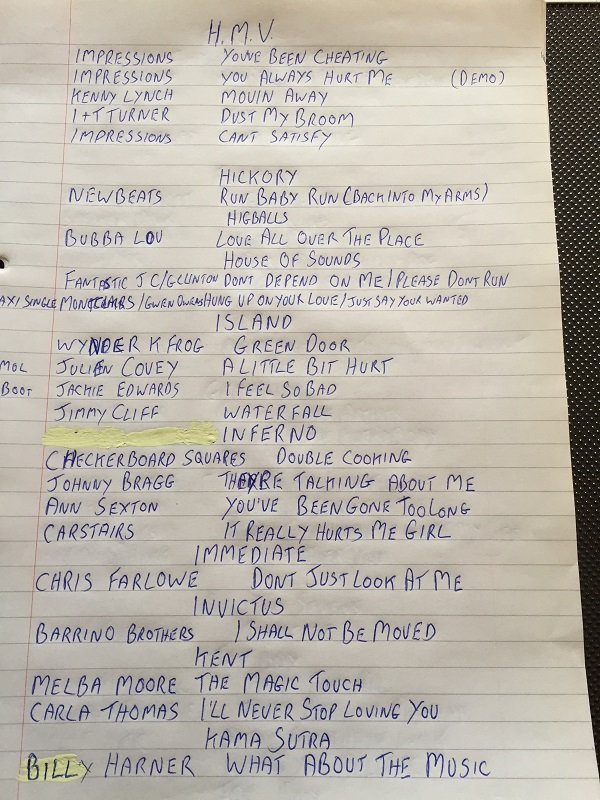 H.M.V.
IMPRESSIONS YOU'VE BEEN CHEATING
IMPRESSIONS YOU ALWAYS HURT ME (DEMO)
KENNY LYNCH MOVIN AWAY
I+T TURNER DUST MY BROOM
IMPRESSIONS CANT SATISFY
HICKORY
NEWBEATS RUN BABY RUN (BACK INTO MY ARMS)
HIGBALLS
BUBBA LOU LOVE ALL OVER THE PLACE
HOUSE OF SOUNDS
FANTASTIC J C/G CLINTON DONT DEPEND ON ME/PLEASE DONT RUN
AXI SINGLE MONTCLAIRS/GWEN OWENS HUNG UP ON YOUR LOVE/JUST SAY YOUR WANTED
ISLAND
WYNDER K FROG GREEN DOOR
MOL JULIEN COVEY A LITTLE BIT HURT
BOOT JACKIE EDWARDS I FEEL SO BAD
JIMMY CLIFF WATERFALL
INFERNO
CHECKERBOARD SQUARES DOUBLE COOKING
JOHNNY BRAGG THEY'RE TALKING ABOUT ME
ANN SEXTON YOU'VE BEEN GONE TOO LONG
CARSTAIRS IT REALLY HURTS ME GIRL
IMMEDIATE
CHRIS FARLOWE DONT JUST LOOK AT ME
INVICTUS
BARRINO BROTHERS I SHALL NOT BE MOVED
KENT
MELBA MOORE THE MAGIC TOUCH
CARLA THOMAS I'LL NEVER STOP LOVING YOU
KAMA SUTRA
BILLY HARNER WHAT ABOUT THE MUSIC